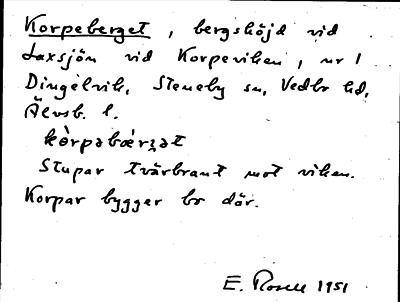 Korpeberget, bergshöjd vid
Laxsjön vid Korpeviken, nr 1
Dingelvik, Steneby sn, Vedbo hd,
Älvsb. l.
kòrpəbæ̀rʒət
Stupar tvärbrant mot viken.
Korpar bygger bo där.
E. Rosell 1951